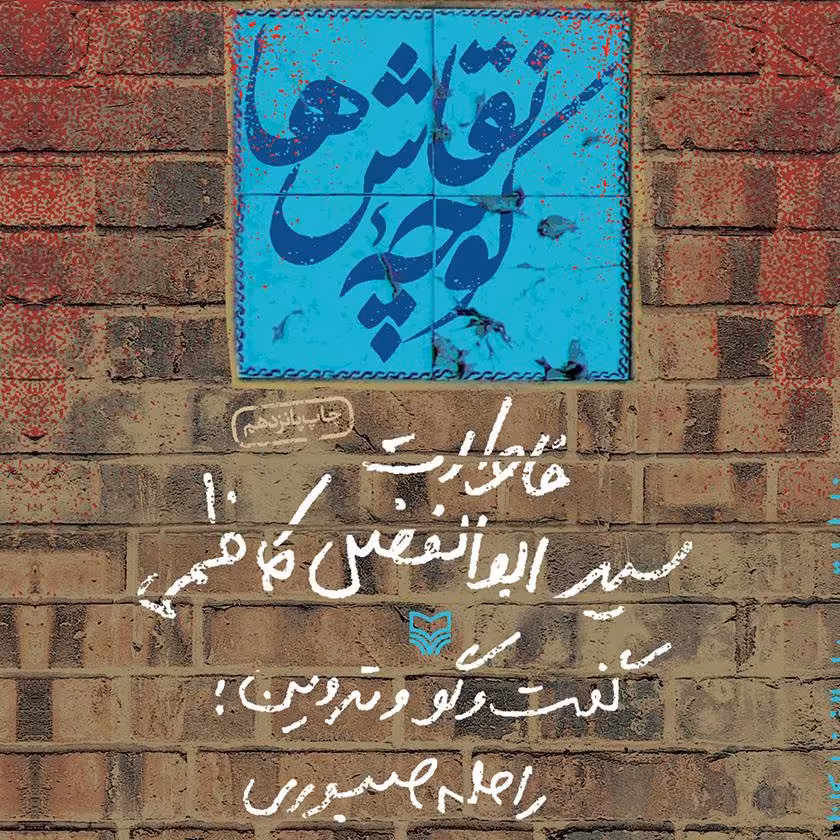 کوچه نقاش‌ها
چاپ پانزدهم
خاطرات
سید ابوالفضل کاظمی
گفت و گو و تدوین:
راحله صبوری